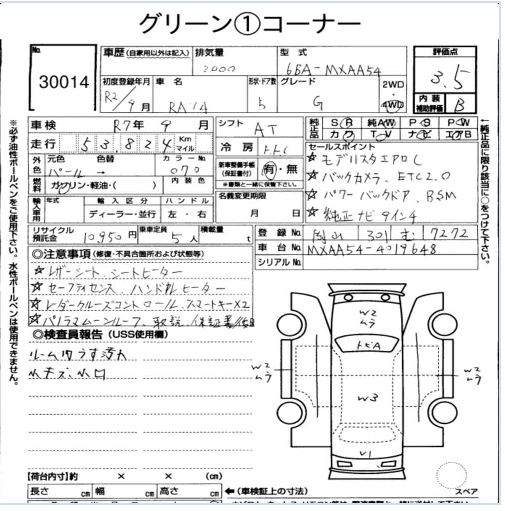 グリーン①コーナー
No.
30014
車歴 (自家用以外は記入)
排気量
2000
型式
6BA-MXAA54
評価点
3.5
初度登録年月
R2/9月
車名
RAV4
形状・ドア数
5
グレード
G
2WD
4WD
内装
補助評価
B
車検
R7年 9月
シフト
AT
純正品
SR AW 純AW PS PW
カワ TV ナビ エアB
走行
53824
Km
マイル
冷房
AAC
セールスポイント
☆モデリスタエアロ
☆バックカメラ、ETC2.0
☆パワーバックドア、BSM
☆純正ナビ 9インチ
外色
元色
パール
色替
→
カラーNo
070
新車整備手帳
(保証書付)
有・無
※書類と一緒に保管下さい。
燃料
ガソリン・軽油・( )
内装色
名義変更期限
月 日
輸入車用
年式
輸入区分
ディーラー・並行
ハンドル
左・右
リサイクル
預託金
10950円
乗車定員
5人
積載量
t
登録No.
岡山 301 む 7272
車台No.
MXAA54-4019648
シリアルNo.
◎注意事項(修復・不具合箇所および状態等)
☆レザーシート シートヒーター
☆セーフティセンス、ハンドルヒーター
☆レーダークルーズコントロール、スマートキーX2
☆パノラマムーンルーフ 取説、保証書
◎検査員報告(USS使用欄)
ルーム内うす汚れ
小キズ、小凹
W2
ムラ
トビA
W2
ムラ
W3
W2
ムラ
V1
スペア
【荷台内寸】約 × × (cm)
長さ cm 幅 cm 高さ cm ←(車検証上の寸法)
※必ず油性ボールペンをご使用下さい。水性ボールペンは使用できません。
←純正品に限り該当に○をつけて下さい。